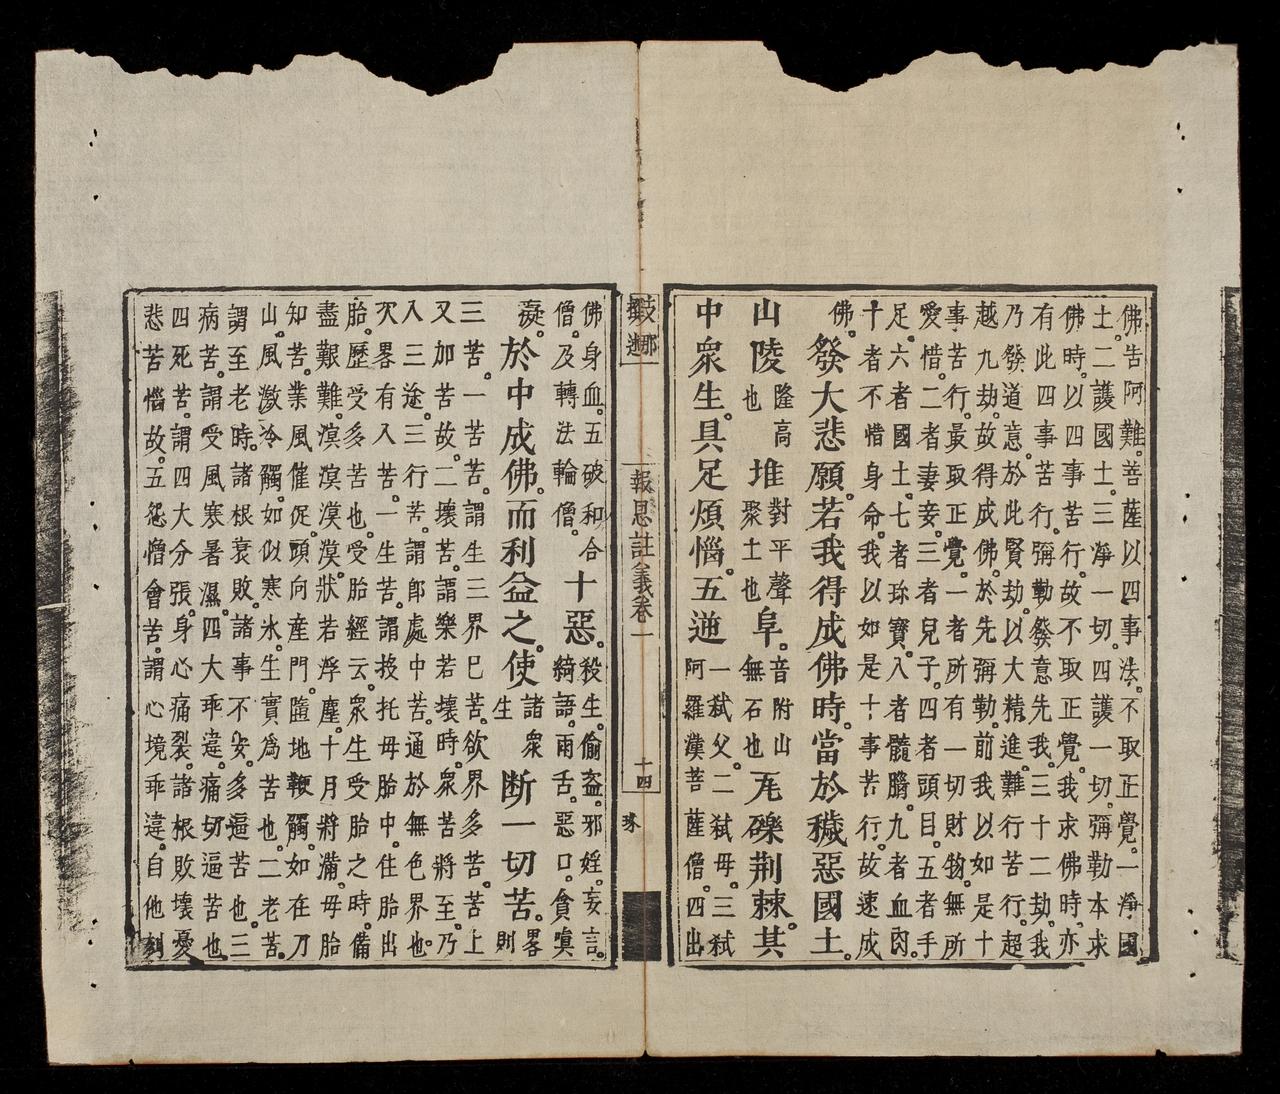 佛告阿難。菩薩以四事法。不取正覺。一淨國
土。二護國土。三淨一切。四護一切。彌勒本求
佛時。以四事苦行。故不取正覺。我求佛時。亦
有此四事苦行。彌勒發意先我。三十二劫。我
乃發道意。於此賢劫。以大精進。難行苦行。超
越九劫。故得成佛。於先彌勒。前我以如是十
事苦行。最取正覺。一者所有一切財物。無所
愛惜。二者妻妾。三者兒子。四者頭目。五者手
足。六者國土。七者珎寶。八者髓腦。九者血肉。
十者不惜身命。我以如是十事苦行。故速成
佛。發大悲願。若我得成佛時。當於穢惡國土。
山陵隆高也堆對平聲聚土也阜。音附山無石也瓦礫荆棘。其
中衆生。具足煩惱。五逆一弒父。二弒母。三弒阿羅漢菩薩僧。四出
報恩註義卷一
十四
佛身血。五破和合僧。及轉法輪僧。十惡。殺生。偷盗。邪婬。妄言。綺語。兩舌。惡口。貪嗔
癡。於中成佛。而利益之。使諸衆生断一切苦。畧則
三苦。一苦苦。謂生三界已苦。欲界多苦。苦上
又加苦故。二壞苦。謂樂若壞時。衆苦將至。乃
入三途。三行苦。謂郎處中苦。通於無色界也。
次畧有入苦。一生苦。謂投托母胎中。住胎出
胎。歷受多苦也。受胎經云。衆生受胎之時。備
盡艱難。溟溟漠漠。狀若浮塵。十月將滿。母胎
知苦。業風催促。頭向産門。墮地鞭觸。如在刀
山。風激冷觸。如似寒氷。生實爲苦也。二老苦。
謂至老時。諸根衰敗。諸事不安。多逼苦也。三
病苦。謂受風寒暑濕。四大乖違。痛切逼苦也。
四死苦。謂四大分張。身心痛裂。諸根敗壞憂
悲苦惱故。五怨憎會苦。謂心境乖違。自他